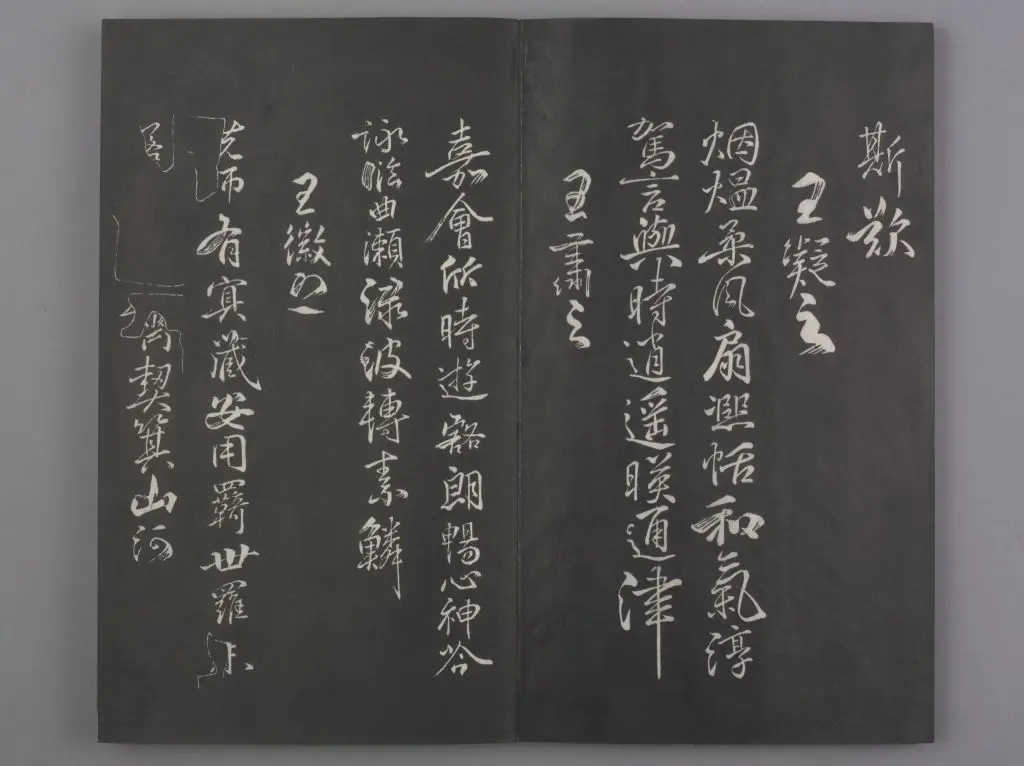 斯歎
王凝之
烟熅柔風扏凞恬和氣淳
駕言興時逍遥暎通津
王肅之
嘉會欣時遊豁朗暢心神吟
詠曲瀨渌波轉素鱗
王徽之
先師有冥藏安用羈世羅未
若齊契箕山阿